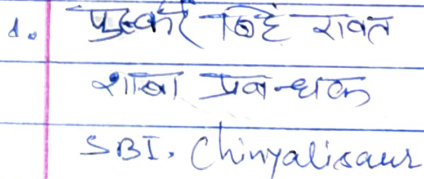 1. पुष्कर सिंह रावत
शाखा प्रबन्धक
SBI, Chinyalisaur